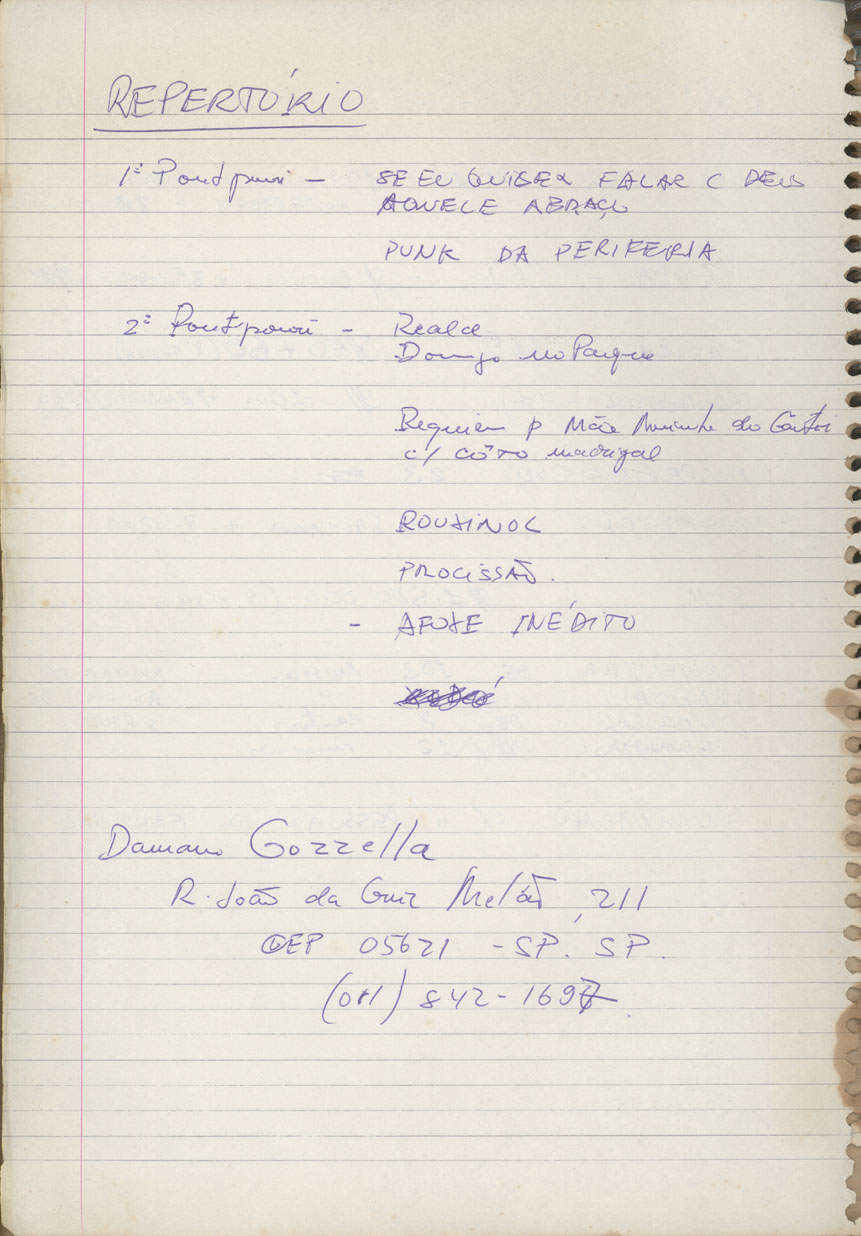 REPERTÓRIO
1º Poutpourri – SE EU QUISER FALAR C DEUS
AQUELE ABRAÇO
PUNK DA PERIFERIA
2º Poutpourri – Realce
Domingo no Parque
Requiem p Mãe Menininha do Gantois
c/ CÔRO madrigal
ROUXINOL
PROCISSÃO.
- AFOXE INÉDITO
Damiano Cozzella
R. João da Cruz Melão, 211
CEP 05621 - SP. SP.
(011) 842-1697